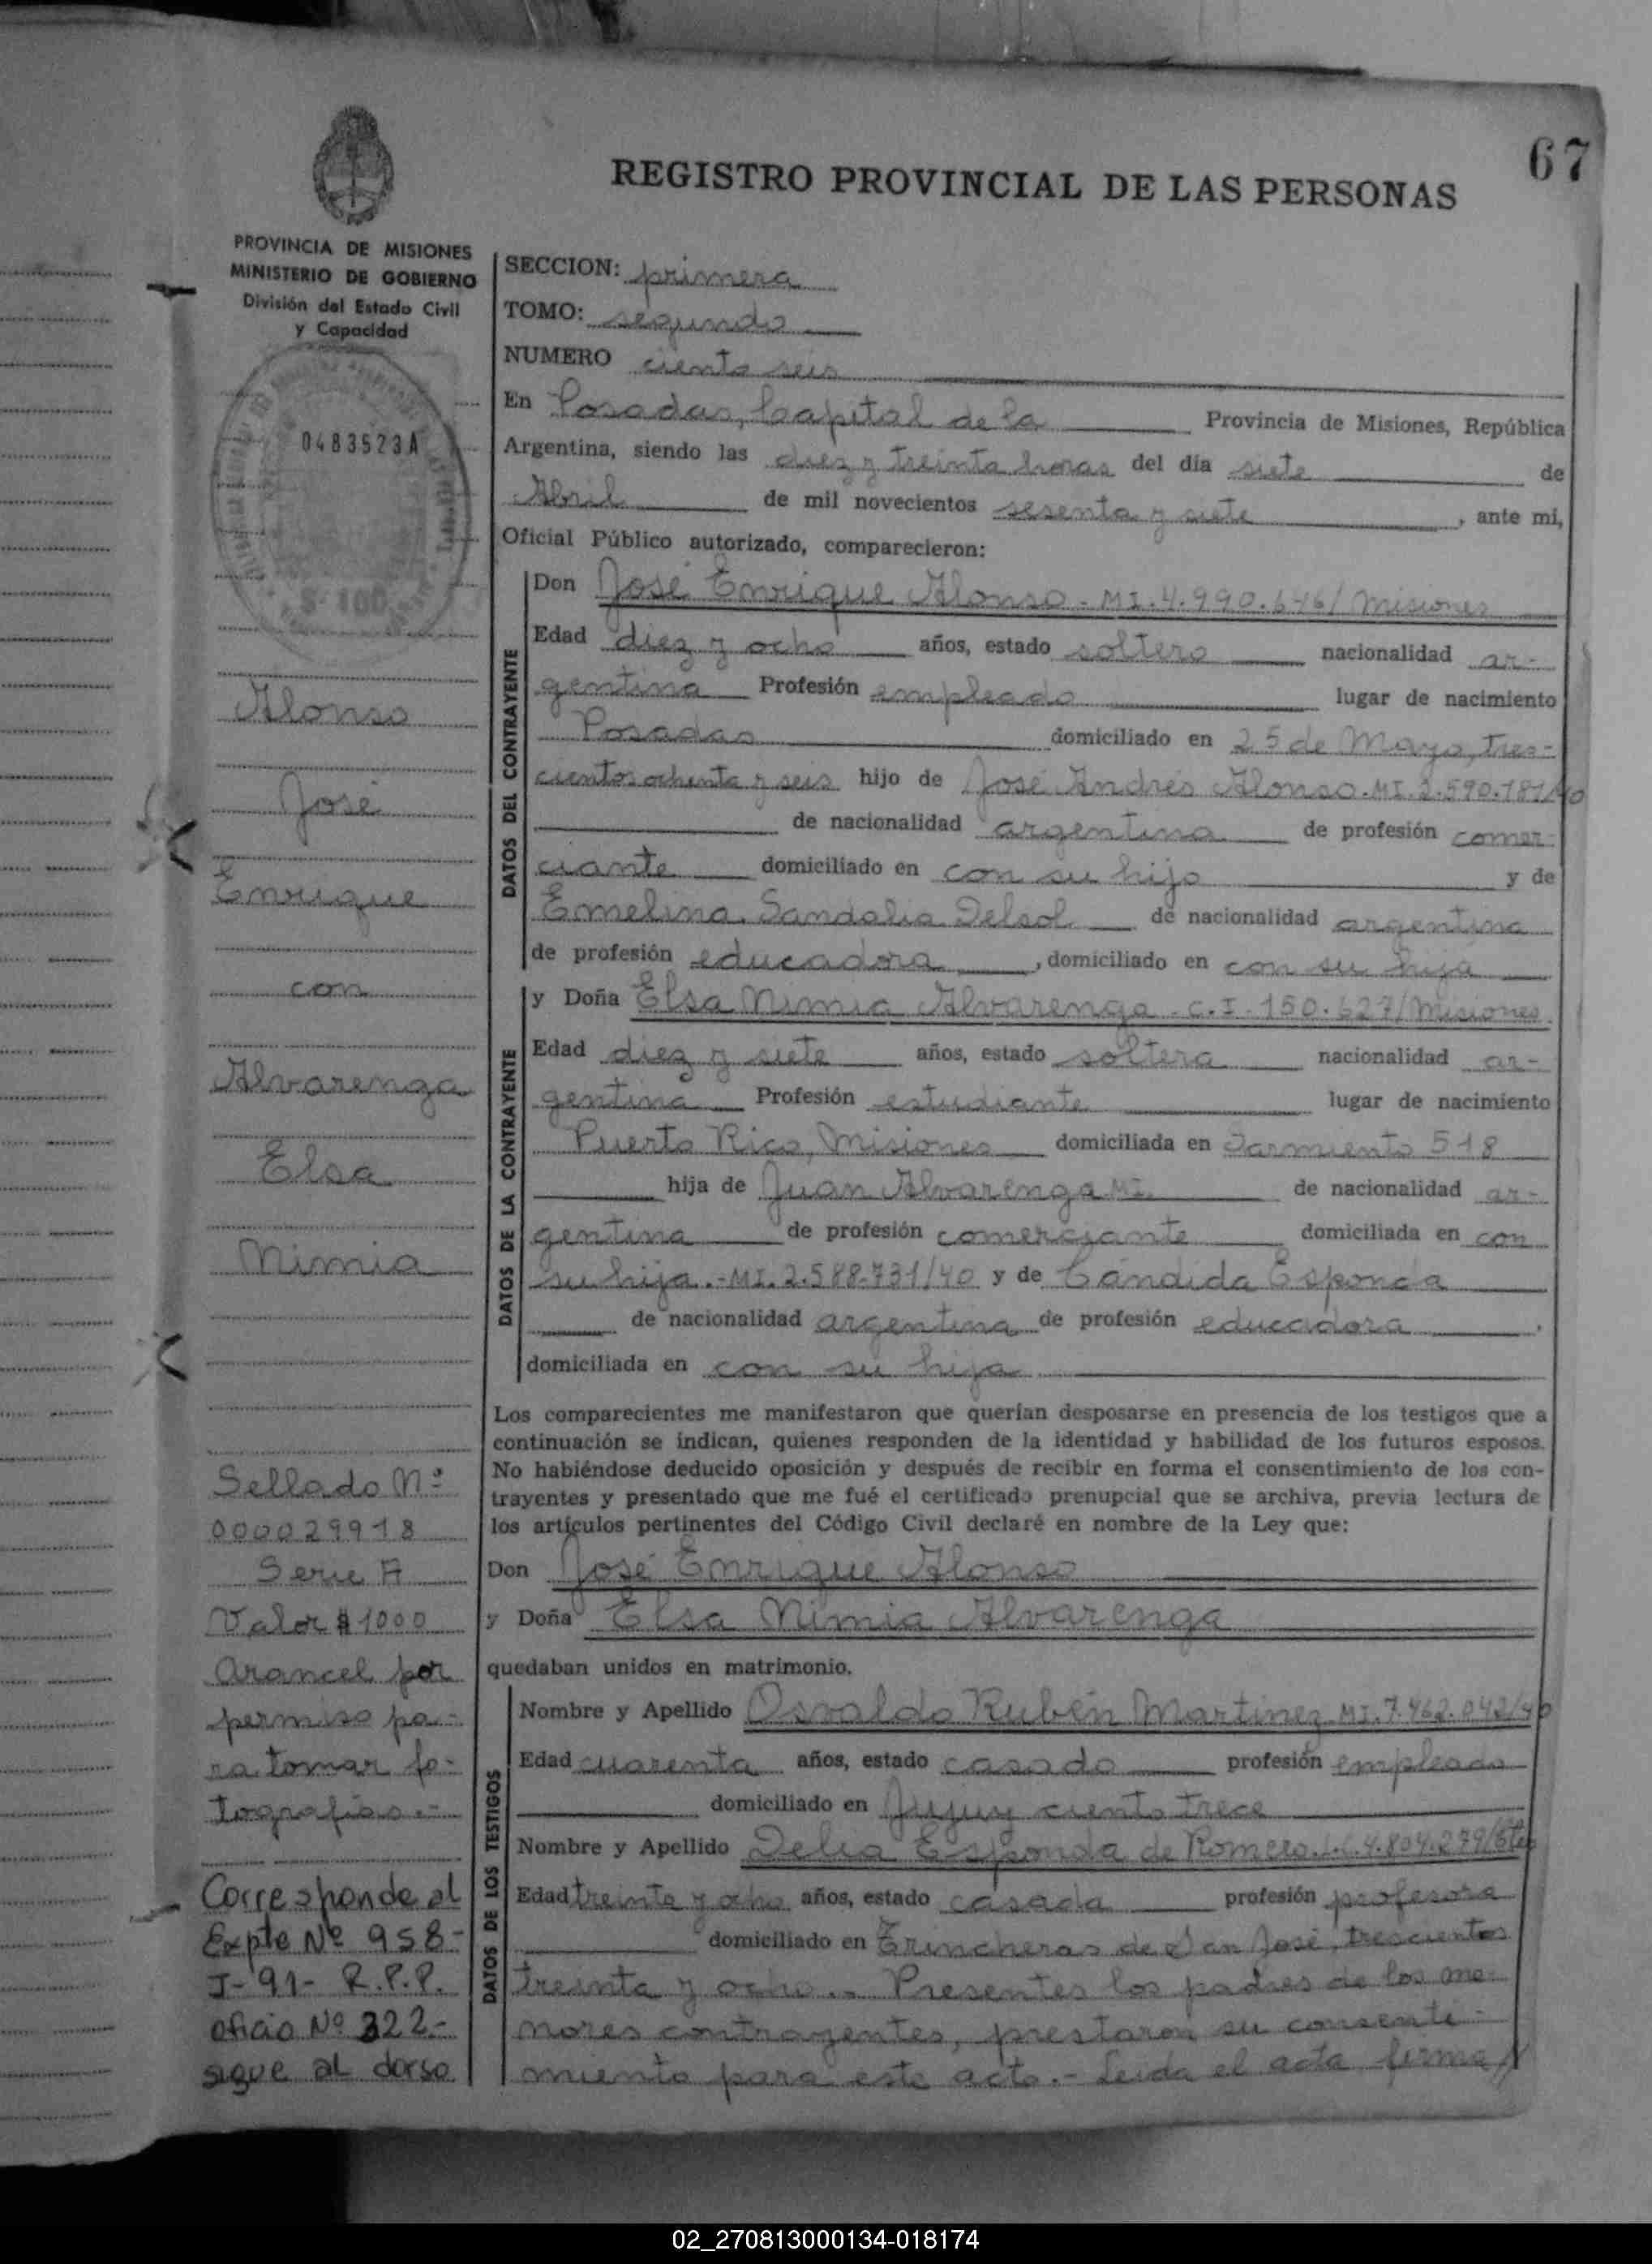 67
REGISTRO PROVINCIAL DE LAS PERSONAS
PROVINCIA DE MISIONES
MINISTERIO DE GOBIERNO
División del Estado Civil
y Capacidad
0483523A
S- 100
Alonso
José
Enrique
con
Alvarenga
Elsa
Nimia
Sellado Nº
000029918
Serie A
Valor $ 1000
Arancel por
permiso pa-
ra tomar fo-
tografías.-
Corresponde al
Expte Nº 958-
J-91- R.P.P.
oficio Nº 322.-
sigue al dorso
SECCION: primera
TOMO: segundo
NUMERO ciento seis
En Posadas, Capital de la Provincia de Misiones, República
Argentina, siendo las diez y treinta horas del día siete de
Abril de mil novecientos sesenta y siete, ante mi,
Oficial Público autorizado, comparecieron:
DATOS DEL CONTRAYENTE
Don José Enrique Alonso - MI. 4.990.646/ Misiones
Edad diez y ocho años, estado soltero nacionalidad ar-
gentina Profesión empleado lugar de nacimiento
Posadas domiciliado en 25 de Mayo, tres-
cientos ochenta y seis hijo de José Andrés Alonso. MI. 2.590.181/40
de nacionalidad argentina de profesión comer-
ciante domiciliado en con su hijo y de
Emelina Sandalia Delsol de nacionalidad argentina
de profesión educadora, domiciliado en con su hija
DATOS DE LA CONTRAYENTE
y Doña Elsa Nimia Alvarenga - C.I. 150.627/ Misiones
Edad diez y siete años, estado soltera nacionalidad ar-
gentina Profesión estudiante lugar de nacimiento
Puerto Rico, Misiones domiciliada en Sarmiento 518
hija de Juan Alvarenga MI. de nacionalidad ar-
gentina de profesión comerciante domiciliada en con
su hija.- MI. 2.588.731/40 y de Cándida Esponda
de nacionalidad argentina de profesión educadora.
domiciliada en con su hija
Los comparecientes me manifestaron que querían desposarse en presencia de los testigos que a
continuación se indican, quienes responden de la identidad y habilidad de los futuros esposos.
No habiéndose deducido oposición y después de recibir en forma el consentimiento de los con-
trayentes y presentado que me fué el certificado prenupcial que se archiva, previa lectura de
los artículos pertinentes del Código Civil declaré en nombre de la Ley que:
Don José Enrique Alonso
y Doña Elsa Nimia Alvarenga
quedaban unidos en matrimonio.
DATOS DE LOS TESTIGOS
Nombre y Apellido Osvaldo Rubén Martinez MI. 7.462.042/40
Edad cuarenta años, estado casado profesión empleado
domiciliado en Jujuy ciento trece
Nombre y Apellido Delia Esponda de Romero. L.C. 4.804.279/
Edad treinta y ocho años, estado casada profesión profesora
domiciliado en Trincheras de San José, trescientos
treinta y ocho.- Presentes los padres de los me-
nores contrayentes, prestaron su consenti-
miento para este acto.- Leída el acta firma//
02_270813000134-018174